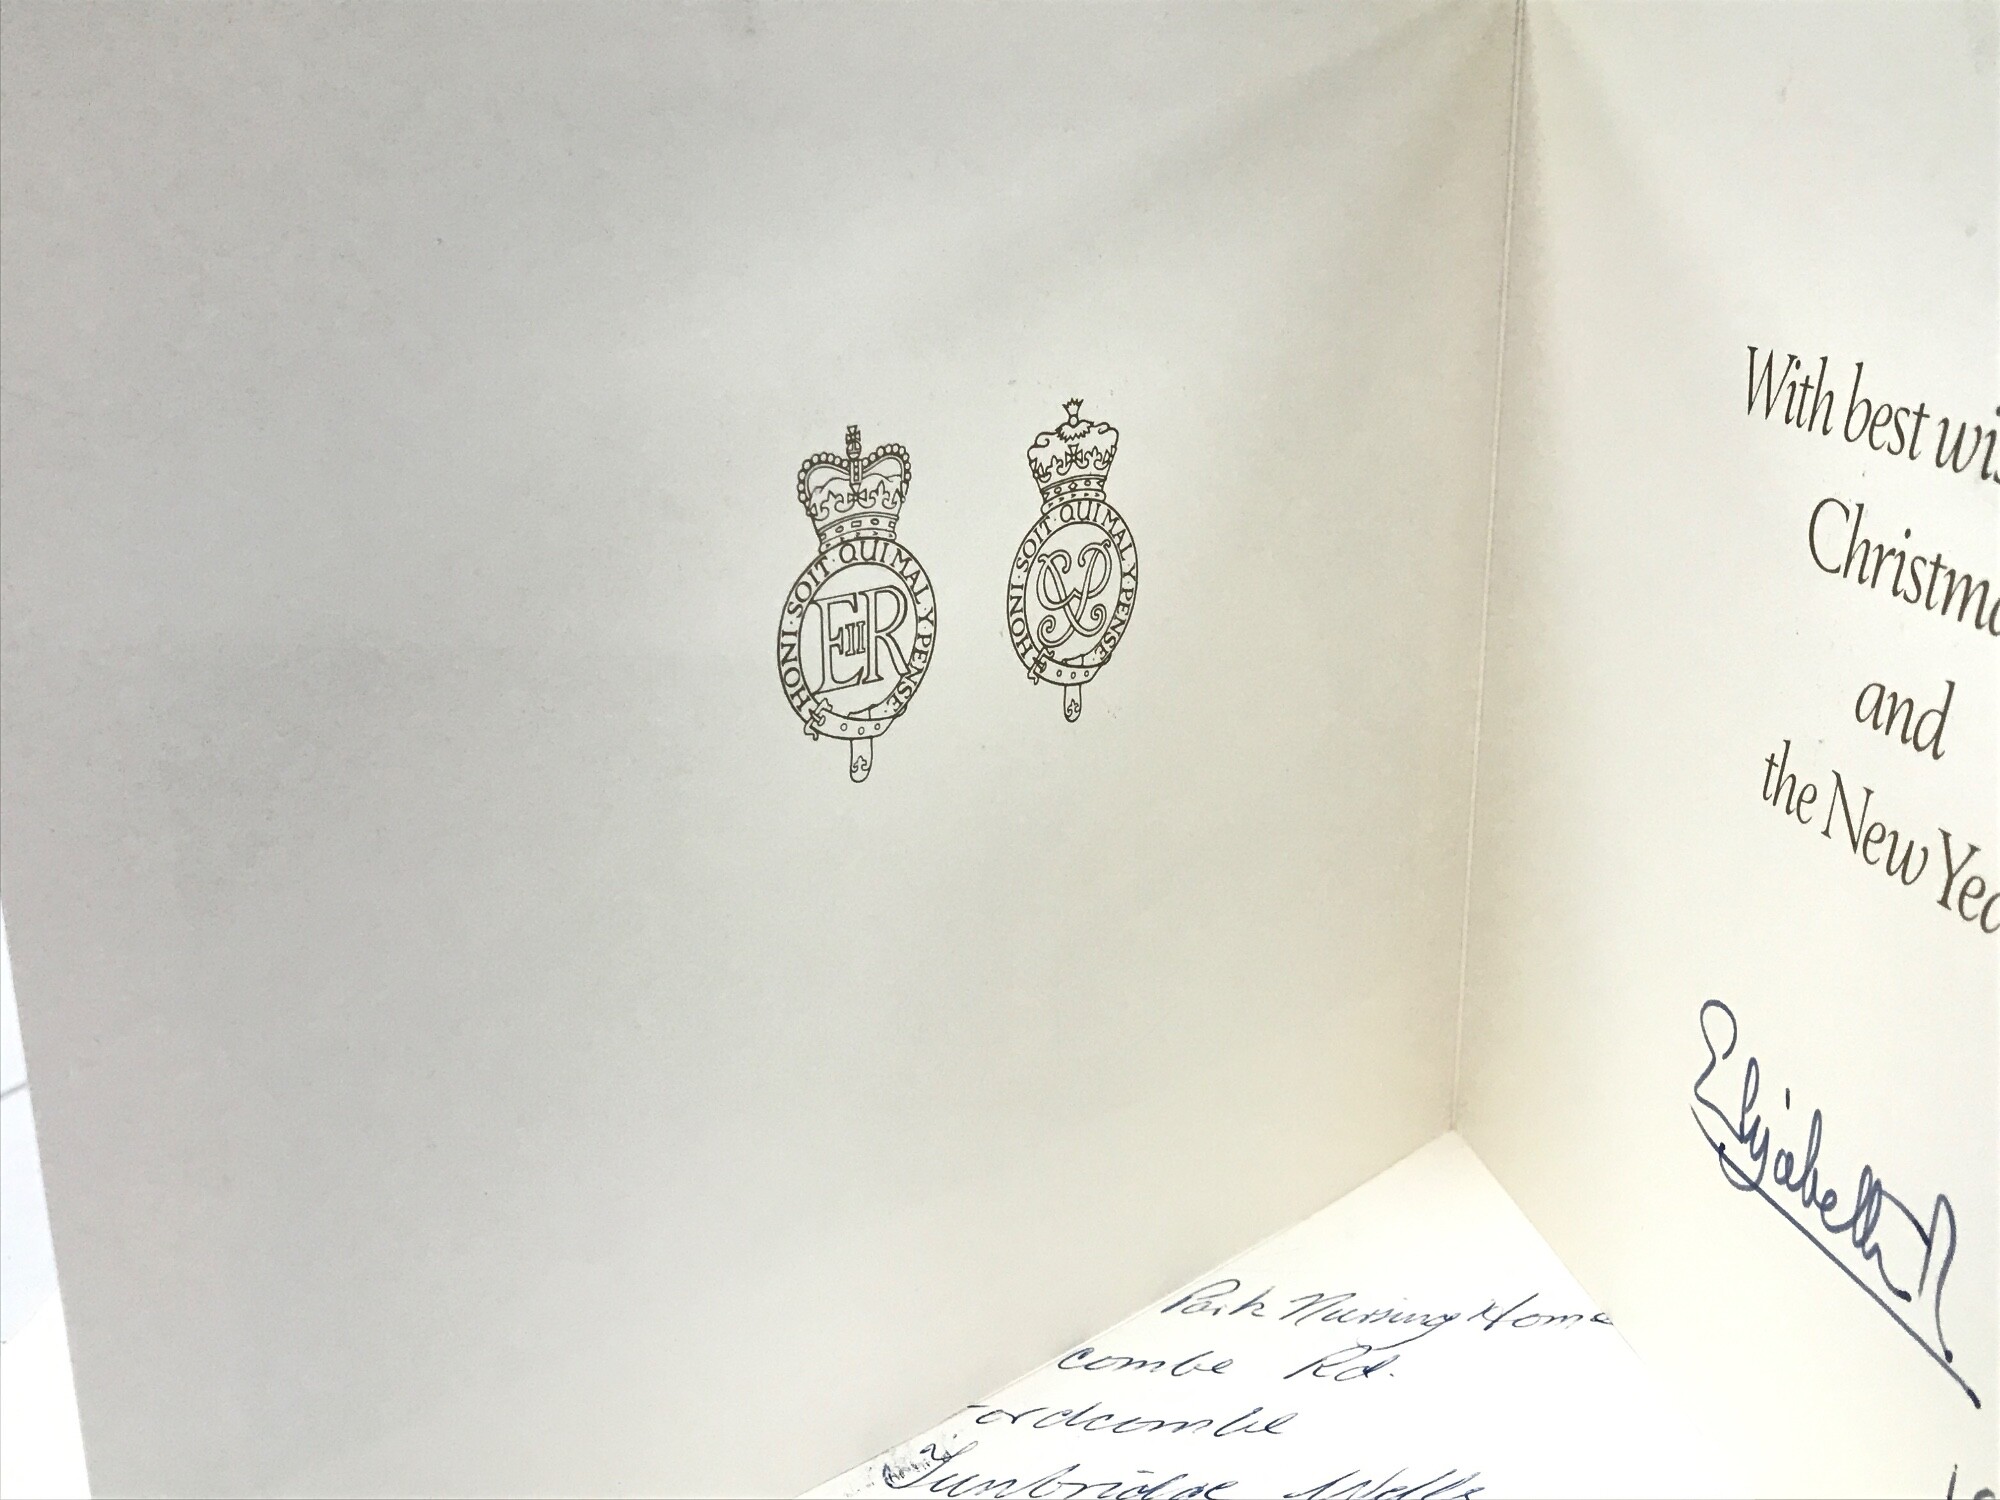 HONI·SOIT·QUI MAL·Y·PENSE
EIIR
HONI·SOIT·QUI MAL·Y·PENSE
With best wis
Christma
and
the New Yea
Elizabeth R
Park Nursing Home
combe Rd.
ordcombe
Tunbridge Wells